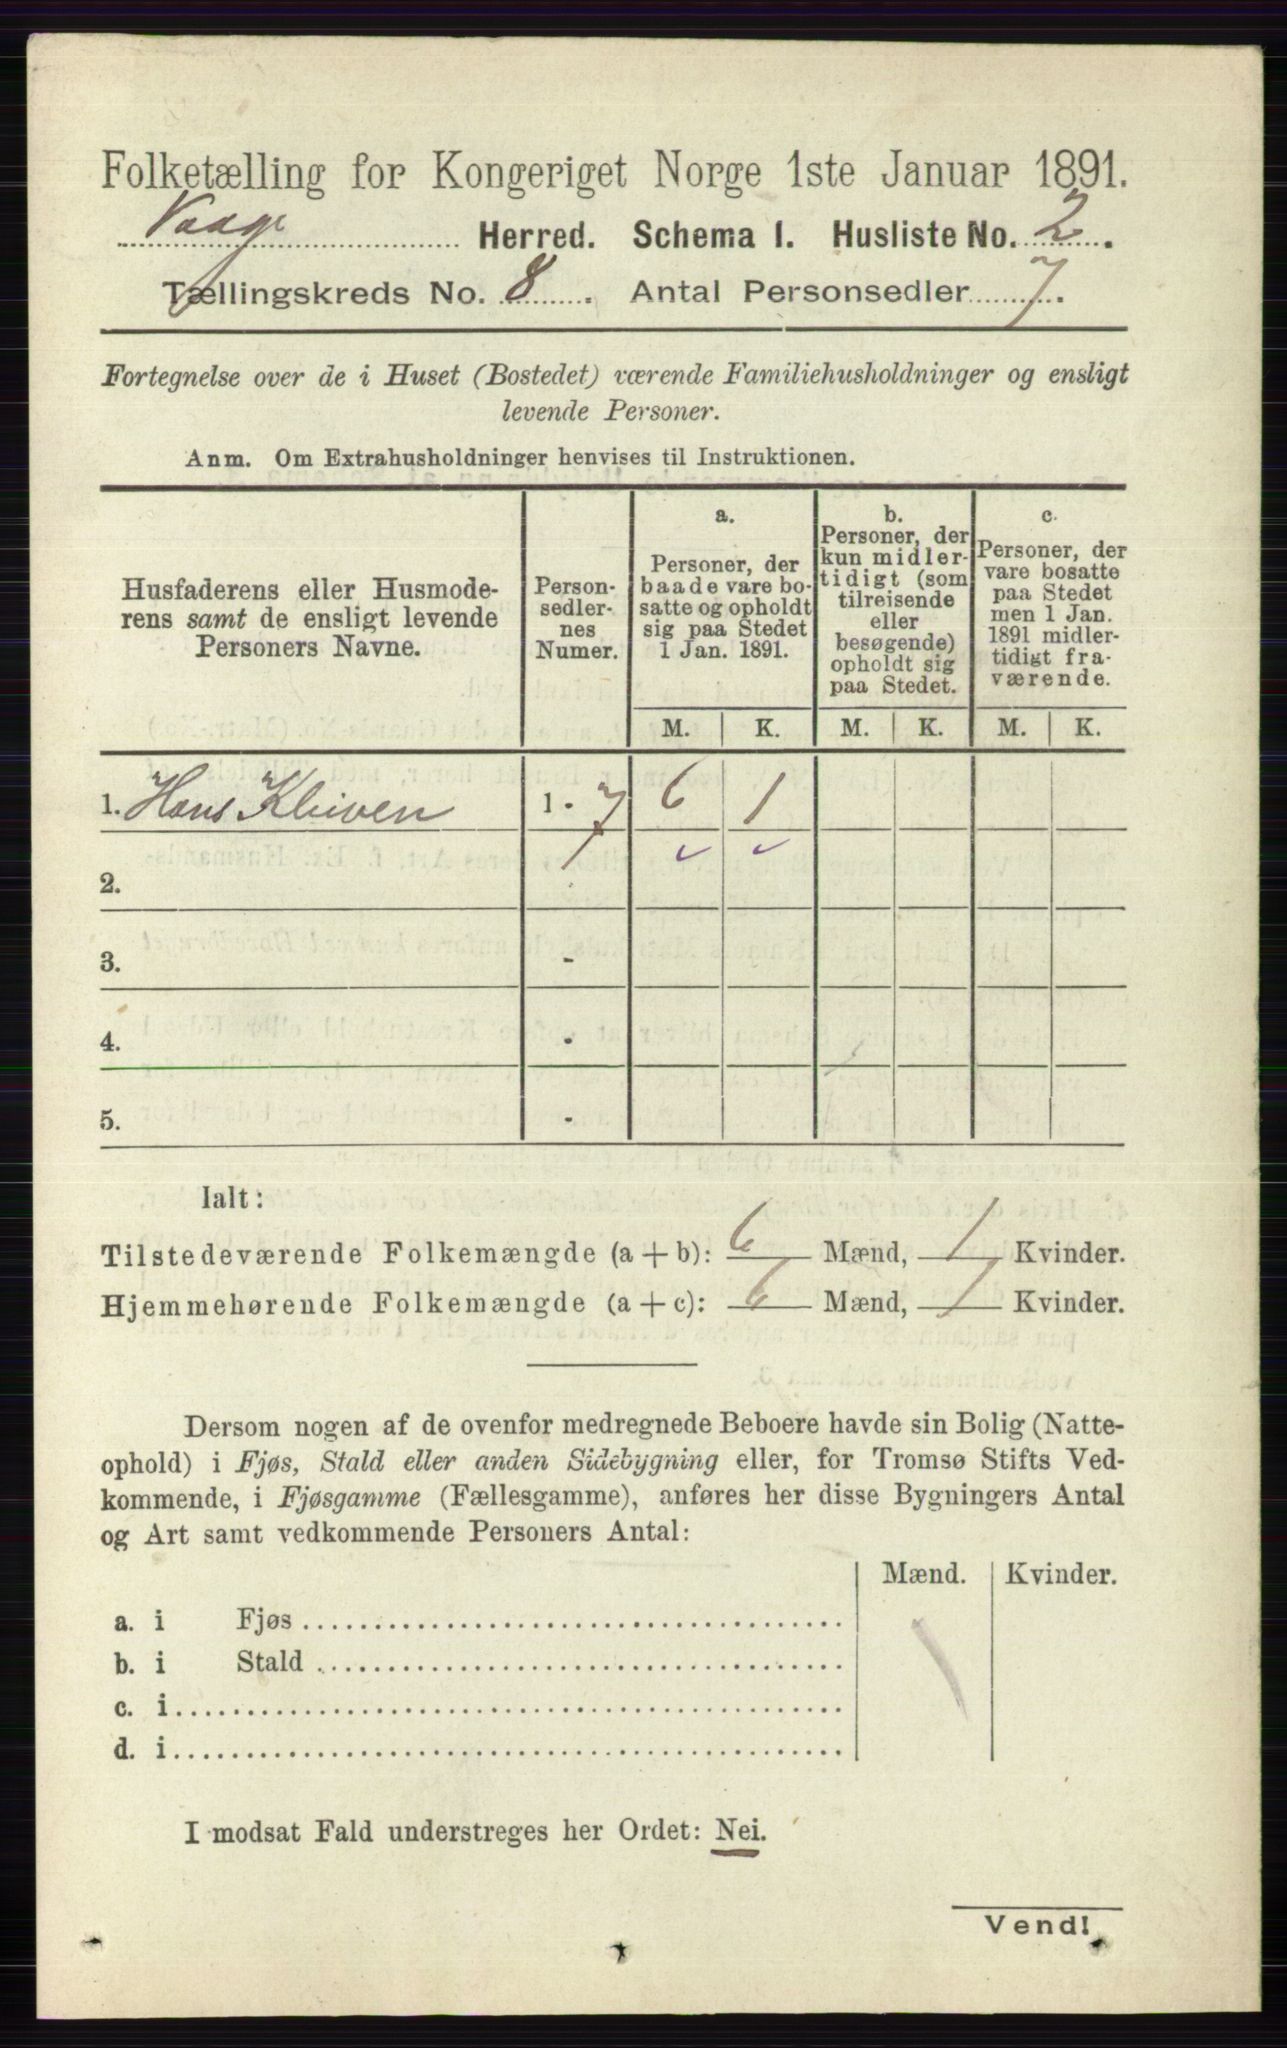 Folketælling for Kongeriget Norge 1ste Januar 1891.
Vaage Herred. Schema I. Husliste No. 2.
Tællingskreds No. 8. Antal Personsedler 7.
Fortegnelse over de i Huset (Bostedet) værende Familiehusholdninger og ensligt
levende Personer.
Anm. Om Extrahusholdninger henvises til Instruktionen.
Husfaderens eller Husmode-
rens samt de ensligt levende
Personers Navne.
Person-
sedler-
nes
Numer.
a.
Personer, der
baade vare bo-
satte og opholdt
sig paa Stedet
1 Jan. 1891.
b.
Personer, der
kun midler-
tidigt (som
tilreisende
eller
besøgende)
opholdt sig
paa Stedet.
c.
Personer, der
vare bosatte
paa Stedet
men 1 Jan.
1891 midler-
tidigt fra-
værende.
M. K. M. K. M. K.
1. Hans Kleiven 1 - 7 6 1
2.
3. -
4. -
5. -
Ialt:
Tilstedeværende Folkemængde (a + b): 6 Mænd, 1 Kvinder.
Hjemmehørende Folkemængde (a + c): 6 Mænd, 1 Kvinder.
Dersom nogen af de ovenfor medregnede Beboere havde sin Bolig (Natte-
ophold) i Fjøs, Stald eller anden Sidebygning eller, for Tromsø Stifts Ved-
kommende, i Fjøsgamme (Fællesgamme), anføres her disse Bygningers Antal
og Art samt vedkommende Personers Antal:
Mænd. Kvinder.
a. i Fjøs
b. i Stald
c. i
d. i
I modsat Fald understreges her Ordet: Nei.
Vend!